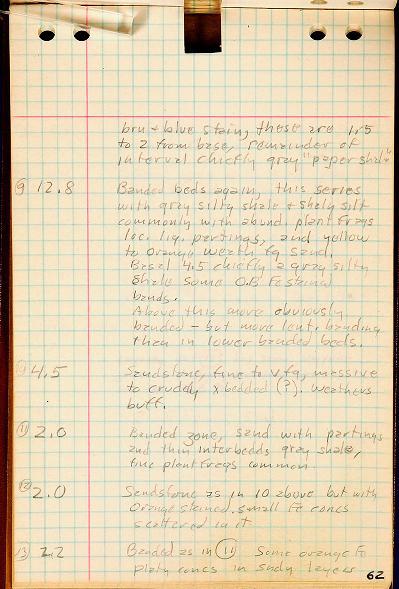 brn + blue stain, these are 1.5
to 2 from base, remainder of
interval chiefly gray "paper shale"
⑨ 12.8 Banded beds again, this series
with gray silty shale + shaly silt
commonly with abund. plant frags
loc. lig. partings, and yellow
to orange weath fg sand.
Basal 4.5 chiefly a gray silty
shale some O.B Fe stained
bands.
Above this more obviously
banded - but more lent. banding
than in lower banded beds.
⑩ 4.5 Sandstone, fine to vfg, massive
to crudely xbedded (?). Weathers
buff.
⑪ 2.0 Banded zone, sand with partings
and thin interbedds gray shale,
fine plant frags common
⑫ 2.0 Sandstone as in 10 above but with
Orange stained small Fe concs
scattered in it
⑬ 2.2 Banded as in ⑪ Some orange Fe
platy concs in sndy layers
62